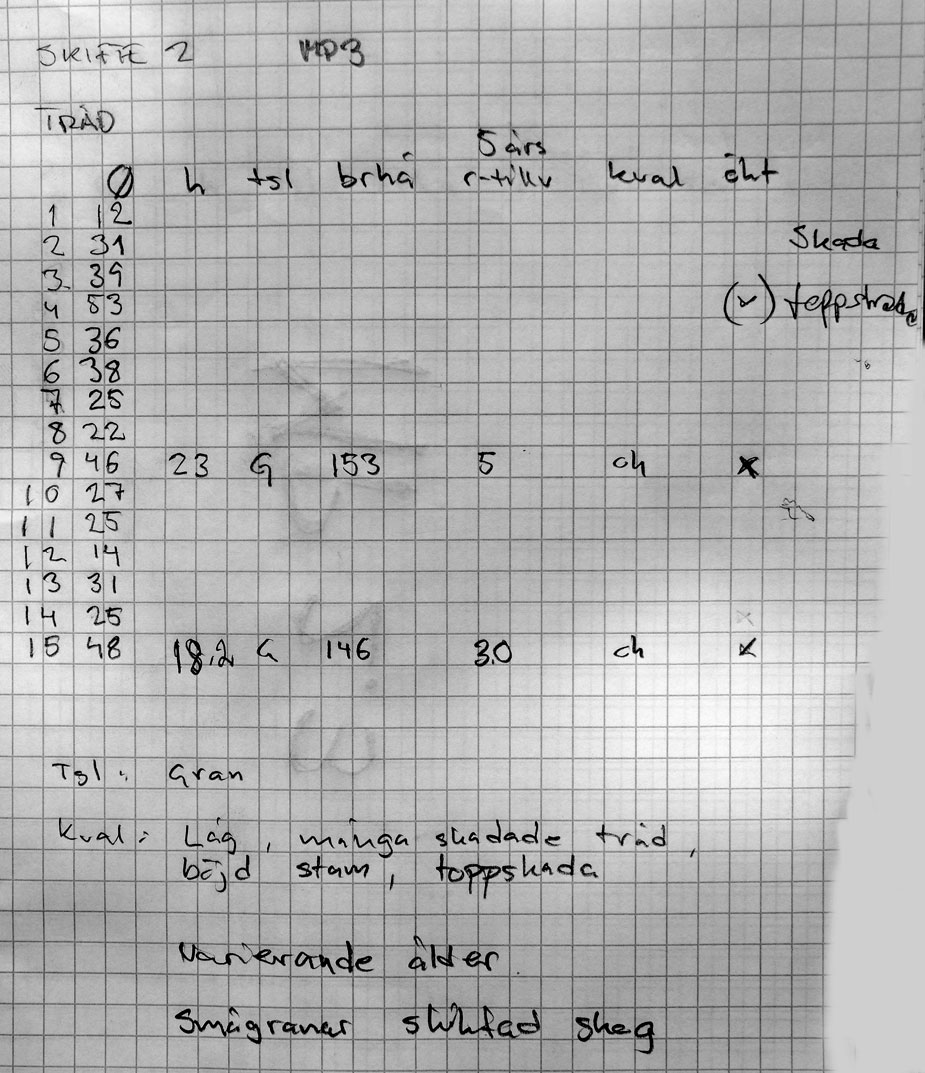 SKIFTE 2 MP3
TRÄD
5 års
Ø h tsl brhå r-tillv kval öht
1 12
2 31
Skada
3 39
4 53 (v)
5 36
6 38
7 25
8 22
9 46 23 G 153 5 ch x
10 27
11 25
12 14
13 31
14 25
15 48 18.2 G 146 3.0 ch x
Tsl: Gran
Kval: Låg, många skadade träd,
böjd stam, toppskada
Varierande ålder
Smågranar skiktad skog